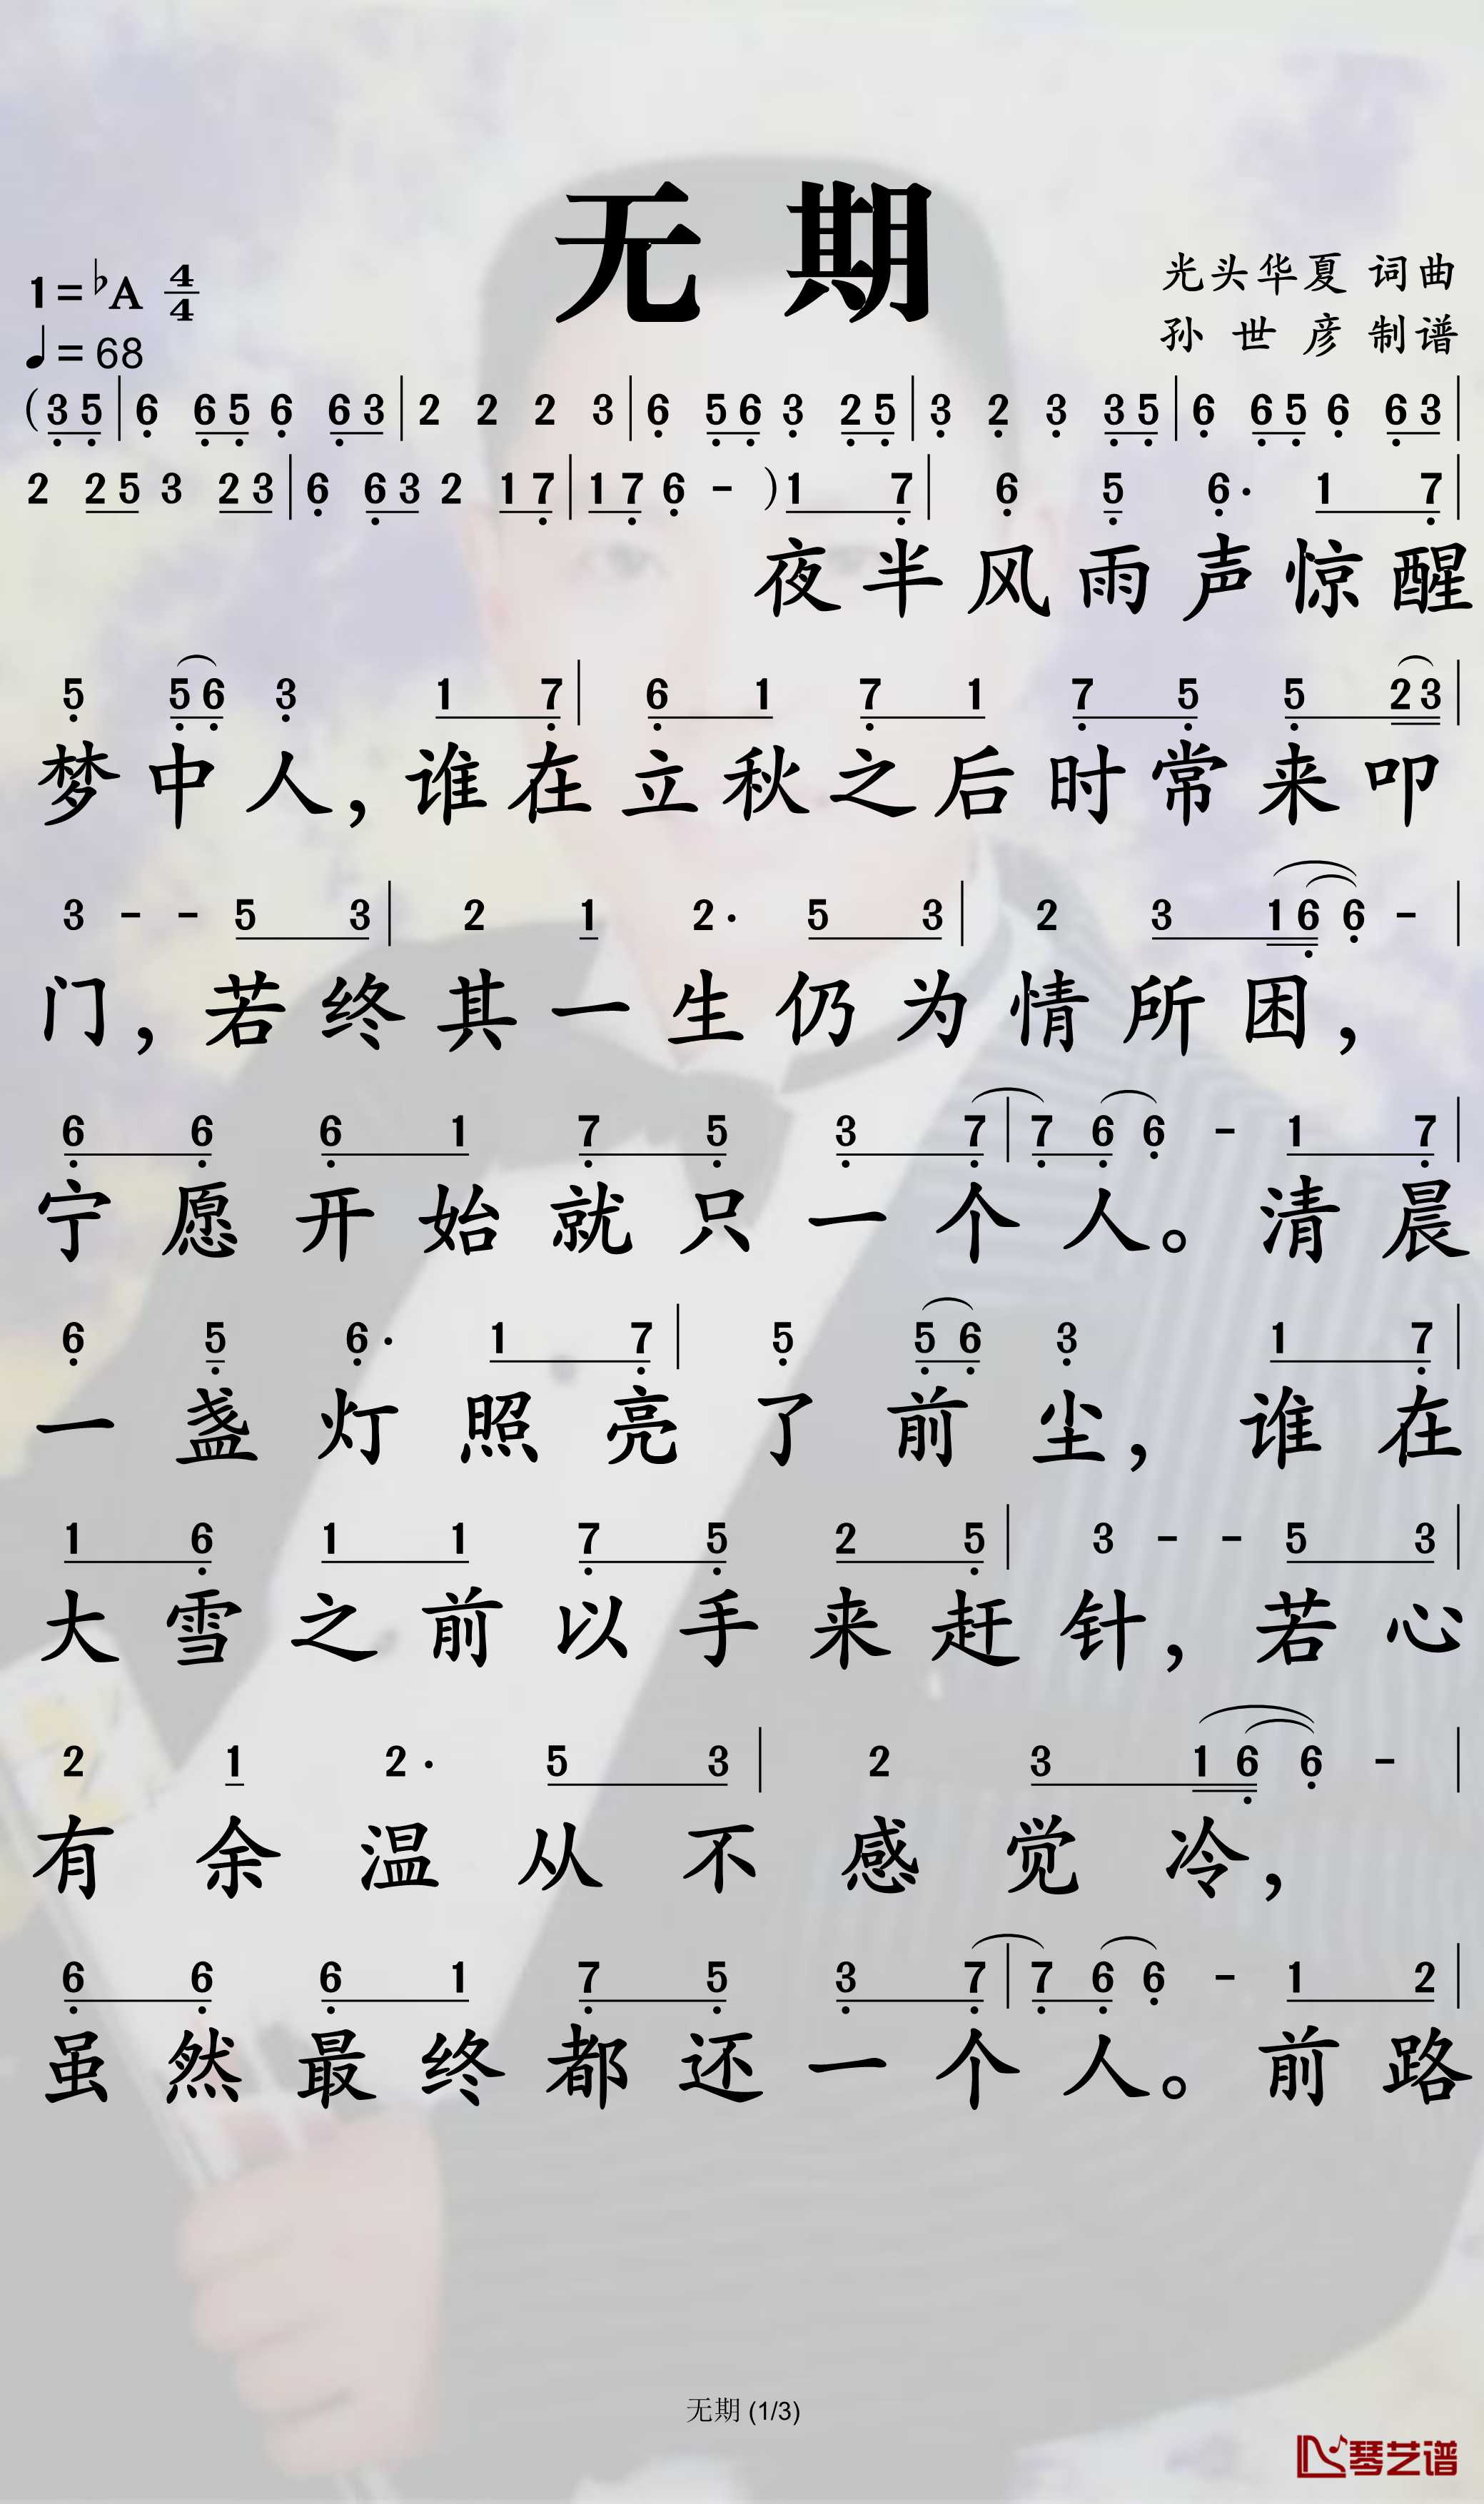 无 期
1=♭A 4/4
光头华夏 词曲
♩=68
孙 世 彦 制谱
(3 5|6 6 5 6 6 3|2 2 2 3|6 5 6 3 2 5|3 2 3 3 5|6 6 5 6 6 3|
2 2 5 3 2 3|6 6 3 2 1 7|1 7 6 - )1 7|6 5 6· 1 7|
夜半风雨声惊醒
5 5 6 3 1 7|6 1 7 1 7 5 5 2 3|
梦中人,谁在立秋之后时常来叩
3 - - 5 3|2 1 2· 5 3|2 3 1 6 6 -|
门,若终其一生仍为情所困,
6 6 6 1 7 5 3 7|7 6 6 - 1 7|
宁愿开始就只一个人。清晨
6 5 6· 1 7|5 5 6 3 1 7|
一盏灯照亮了前尘,谁在
1 6 1 1 7 5 2 5|3 - - 5 3|
大雪之前以手来赶针,若心
2 1 2· 5 3|2 3 1 6 6 -|
有余温从不感觉冷,
6 6 6 1 7 5 3 7|7 6 6 - 1 2|
虽然最终都还一个人。前路
无期 (1/3)
琴艺谱